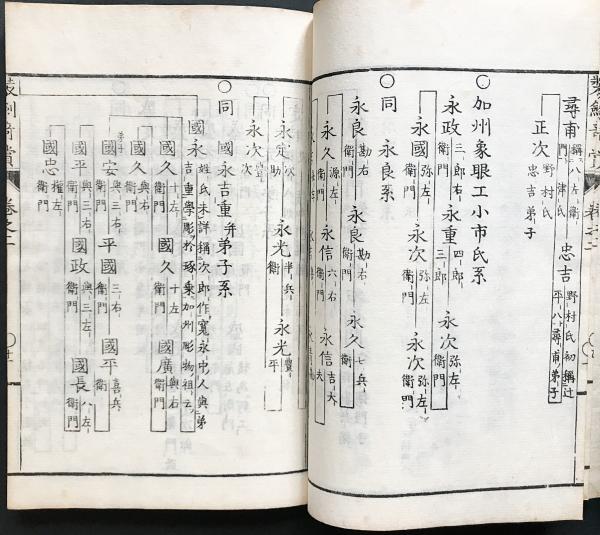 尋甫 稱八左衛門津氏
忠吉 野村氏初稱辻平八尋甫弟子
正次 野村氏忠吉弟子
〇加州象眼工小市氏系
永政 三郎右衛門
永重 四郎
永次 弥左衛門
永國 弥左衛門
永次 弥左衛門
永次 弥左衛門
〇同 永良系
永良 勘右衛門
永良 勘右衛門
永久 七兵衛
永久 源左衛門
永信 六右衛門
永信 吉大夫
永定 助
永光 半兵衛
永光 平
永次
〇同 國永吉重并弟子系
國永 姓氏未詳稱次郎作寛永中人與弟吉重學彫於琢乗加州彫物祖云
國久 十左衛門
國久 十左衛門
國廣 與右衛門
國久 與右衛門
國安 弟子 與三右衛門
平國 三右衛門
國平 喜兵衛
國平 與三右衛門
國政 與三左衛門
國長 八左衛門
國忠 權左衛門
卷之二